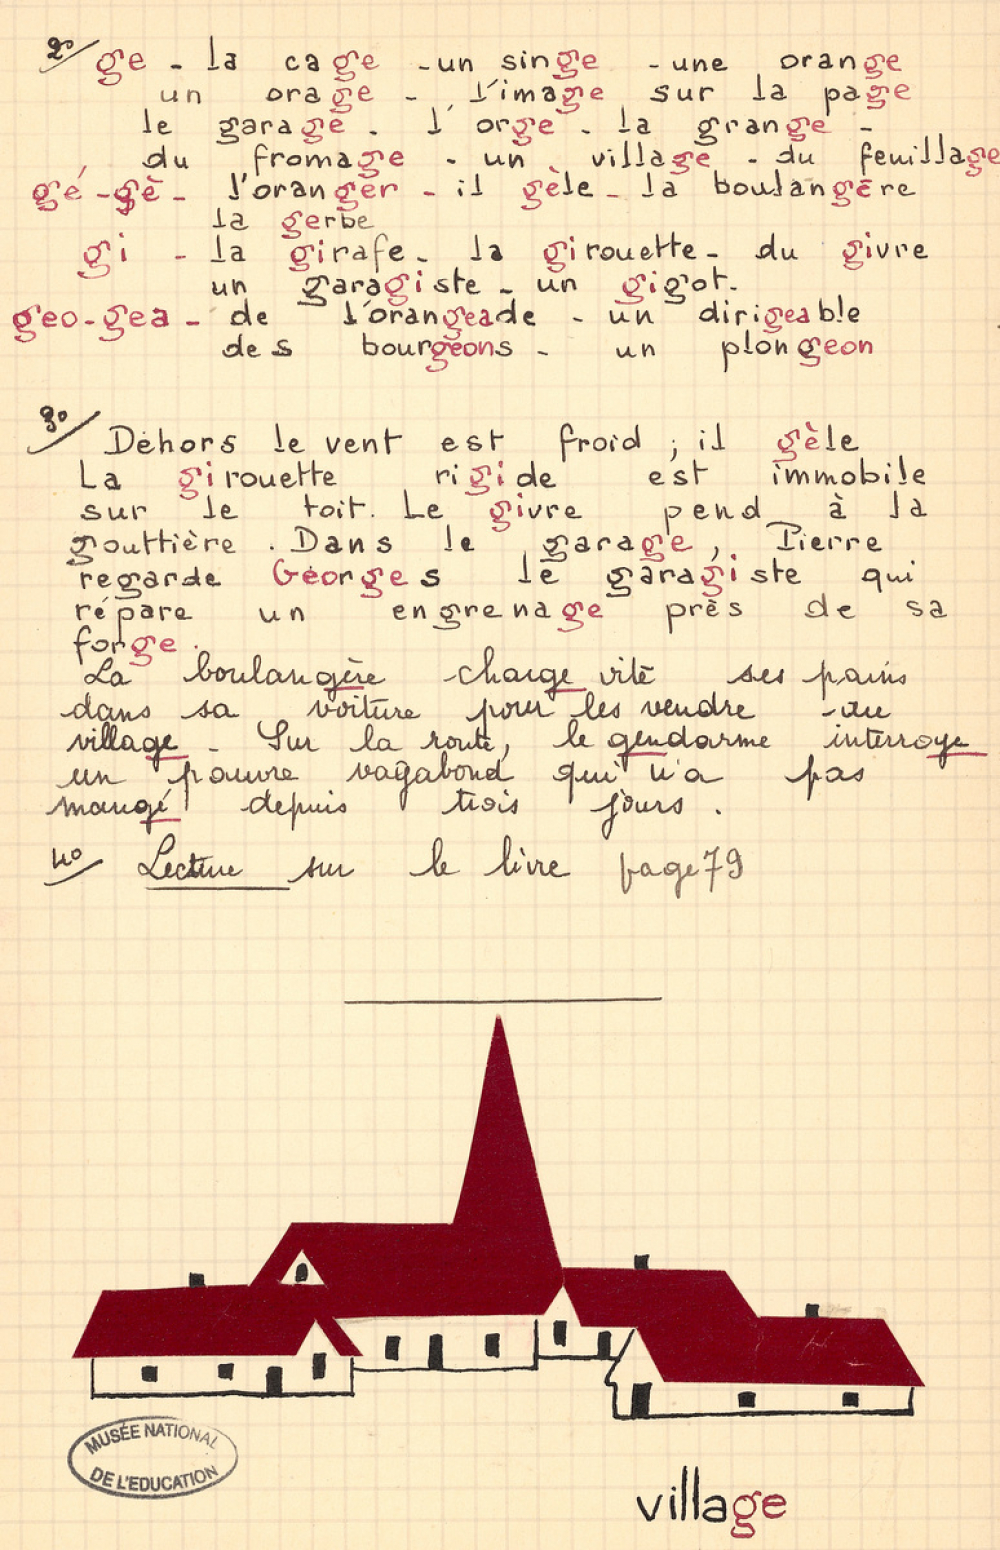 2° ge - la cage - un singe - une orange
un orage - l'image sur la page
le garage - l'orge - la grange -
du fromage - un village - du feuillage
gé - gè - l'oranger - il gèle - la boulangère
la gerbe
gi - la girafe - la girouette - du givre
un garagiste - un gigot.
geo - gea - de l'orangeade - un dirigeable
des bourgeons - un plongeon
3° Dehors le vent est froid ; il gèle
La girouette rigide est immobile
sur le toit. Le givre pend à la
gouttière. Dans le garage, Pierre
regarde Georges le garagiste qui
répare un engrenage près de sa
forge.
La boulangère charge vite ses pains
dans sa voiture pour les vendre au
village - Sur la route, le gendarme interroge
un pauvre vagabond qui n'a pas
mangé depuis trois jours.
4° Lecture sur le livre page 79
MUSÉE NATIONAL
DE L'EDUCATION
village